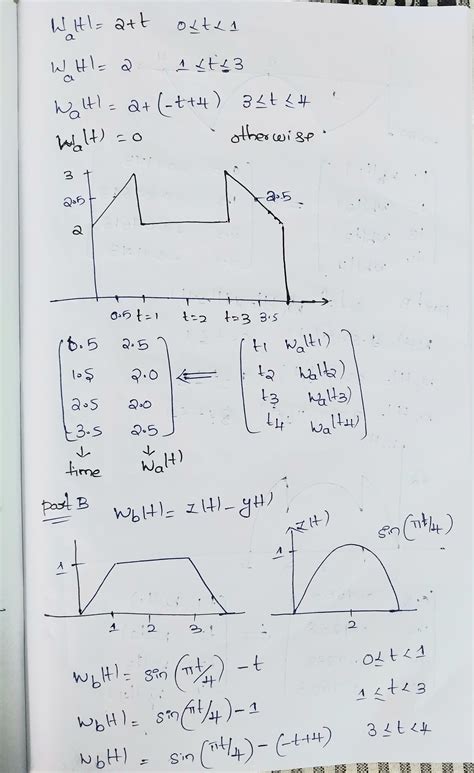 Wa(t) = 2+t 0≤t<1
Wa(t) = 2 1≤t≤3
Wa(t) = 2+(-t+4) 3≤t≤4
Wa(t) = 0 otherwise
3
2.5
2.5
2
0.5 t=1 t=2 t=3 3.5
0.5 2.5
1.5 2.0
2.5 2.0
3.5 2.5
t1 Wa(t1)
t2 Wa(t2)
t3 Wa(t3)
t4 Wa(t4)
time Wa(t)
part B Wb(t) = z(t) - y(t)
1
1 2 3
z(t)
sin(πt/4)
1
2
Wb(t) = sin(πt/4) - t 0≤t<1
Wb(t) = sin(πt/4) - 1 1≤t<3
Wb(t) = sin(πt/4) - (-t+4) 3≤t<4